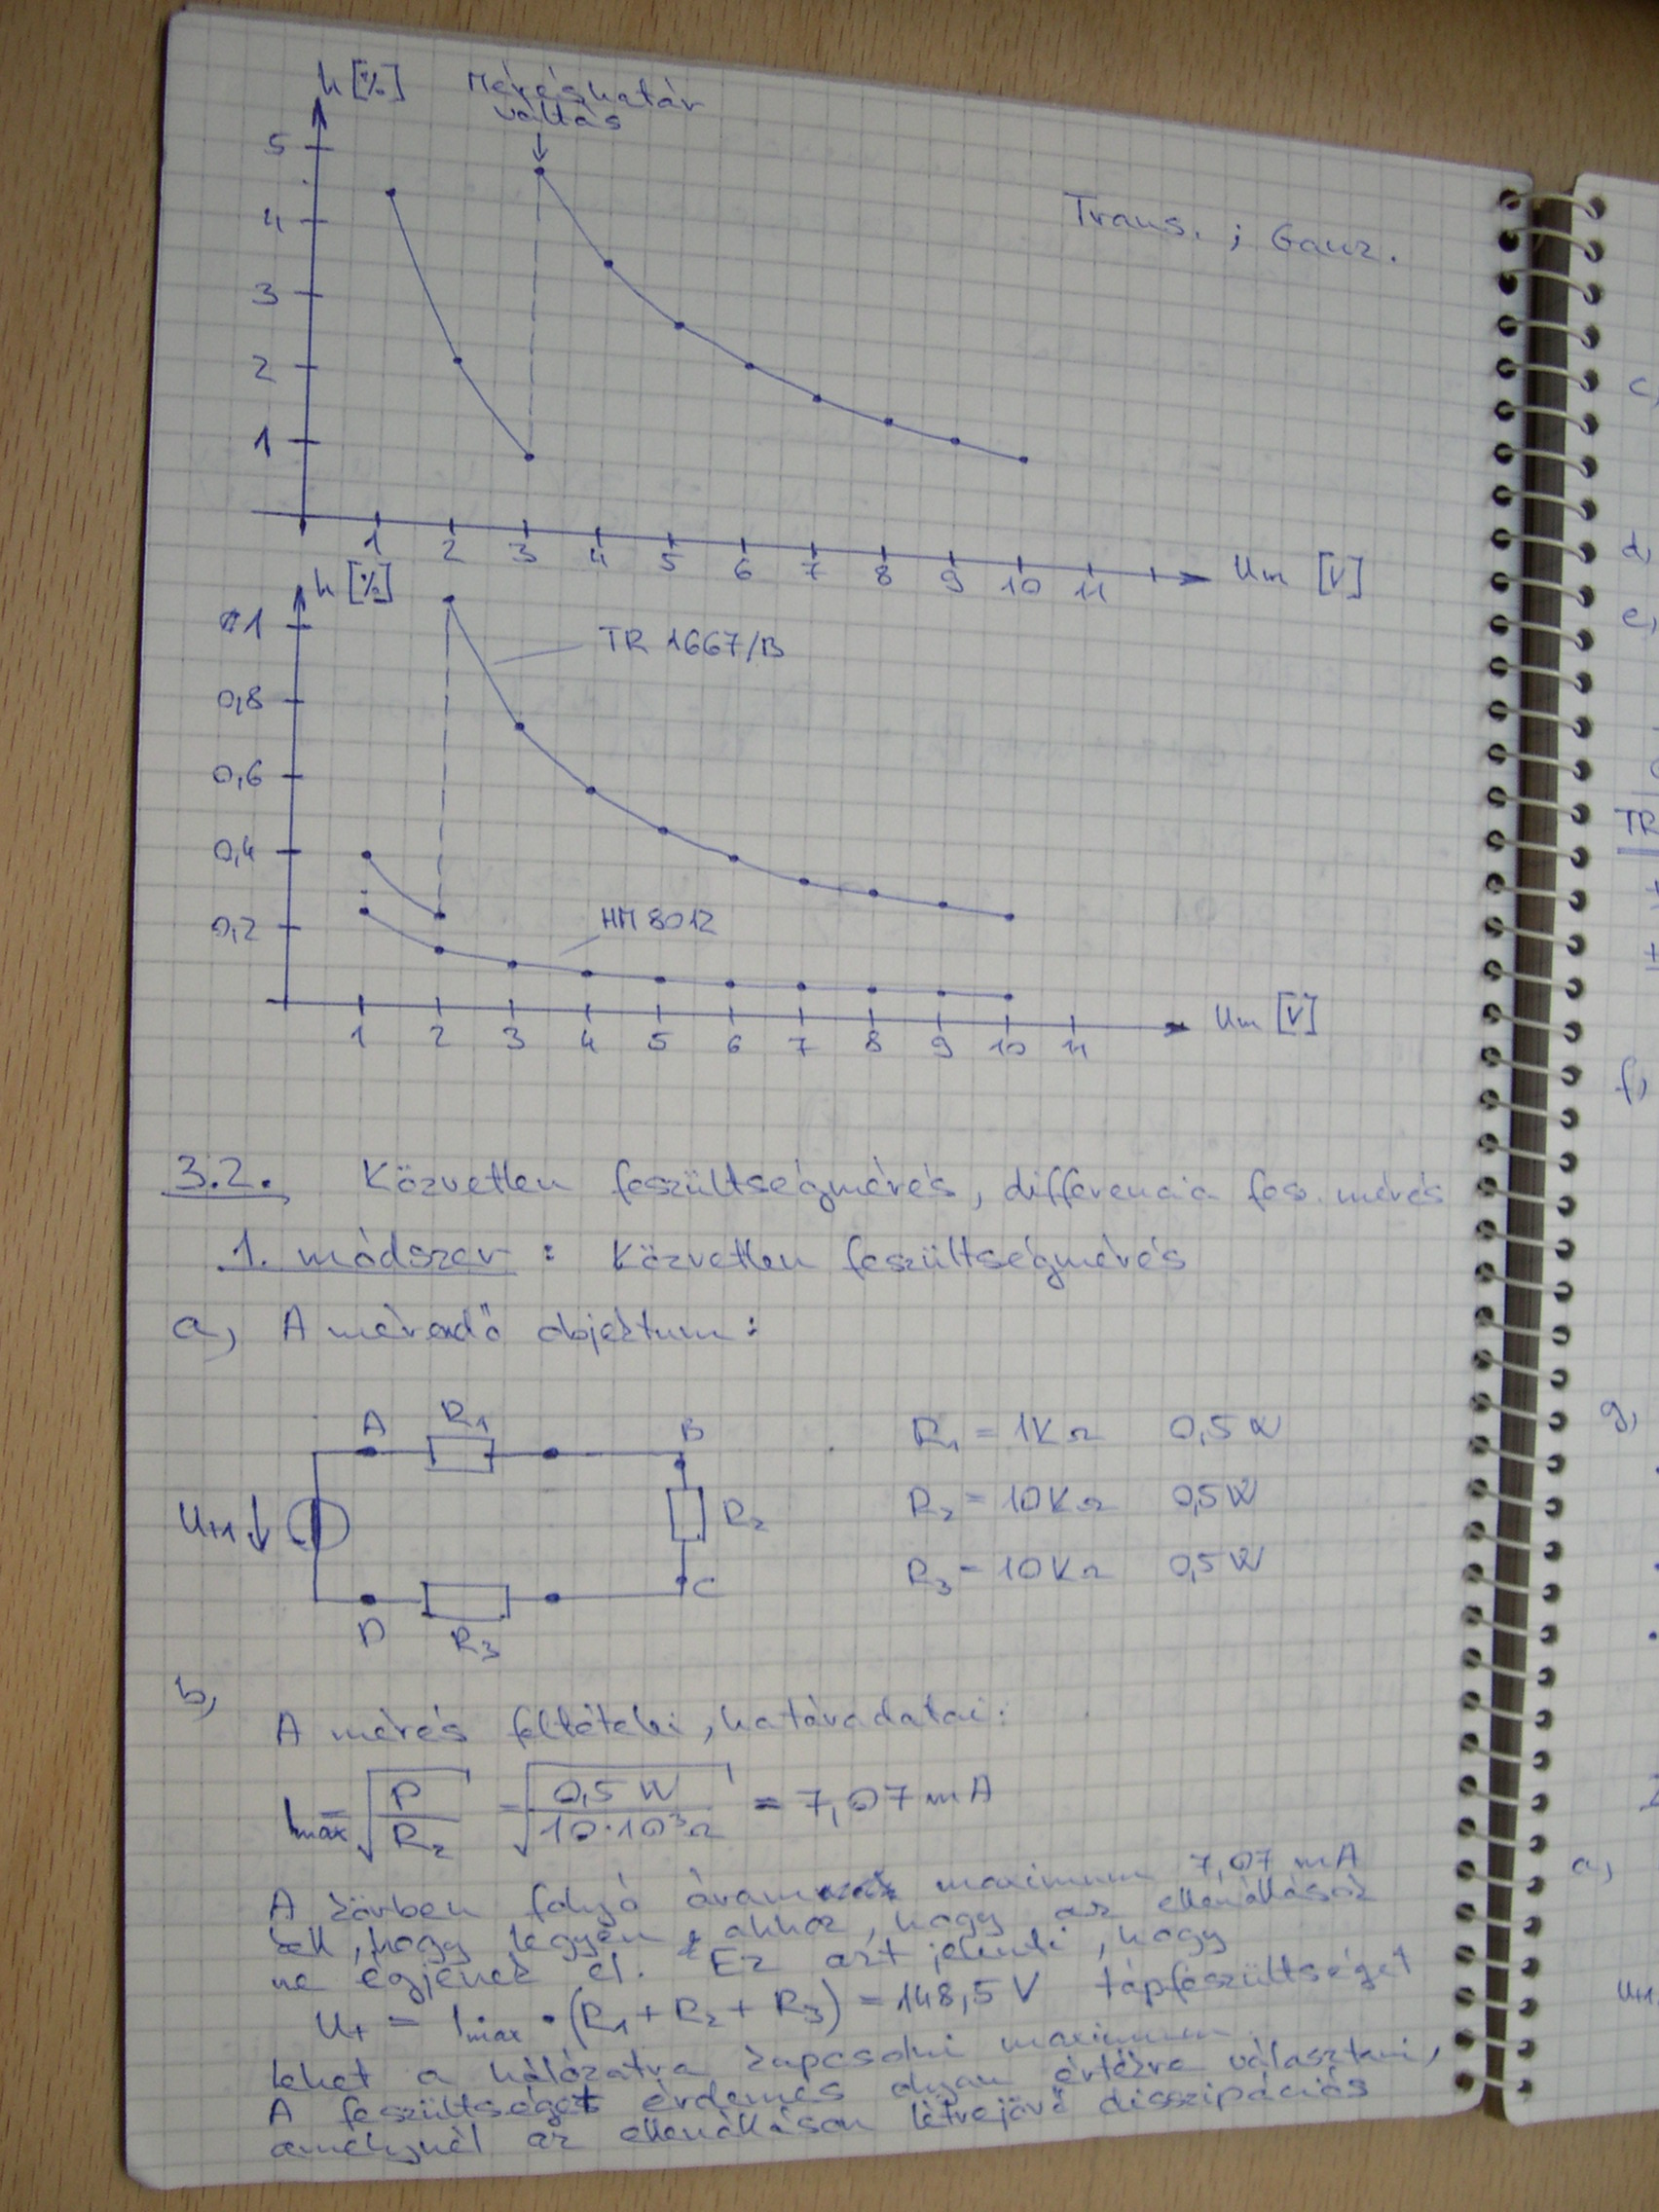 h [%] Méréshatár
váltás
5
4
3
2
1
Trans. ; Ganz.
1 2 3 4 5 6 7 8 9 10 11 Um [V]
h [%]
1
0,8
0,6
0,4
0,2
TR 1667/B
HM 8012
1 2 3 4 5 6 7 8 9 10 11 Um [V]
3.2. Közvetlen feszültségmérés, differencia fesz. mérés
1. módszer : Közvetlen feszültségmérés
a, A mérendő objektum:
A R1 B
Ut1 ↓ R2
D R3 C
R1 = 1KΩ 0,5W
R2 = 10KΩ 0,5W
R3 = 10KΩ 0,5W
b,
A mérés feltételei, határadatai:
Imax = √(P/R2) = √(0,5 W/10·10³Ω) = 7,07 mA
A körben folyó áram maximum 7,07 mA
kell, hogy legyen ahhoz, hogy az ellenállások
ne égjenek el. Ez azt jelenti, hogy
Ut = Imax · (R1 + R2 + R3) = 148,5 V tápfeszültséget
lehet a hálózatra kapcsolni maximum.
A feszültséget érdemes olyan értékre választani,
amelynél az ellenálláson létrejövő disszipációs
c,
d,
e,
TR
f,
g,
a,
Ut1